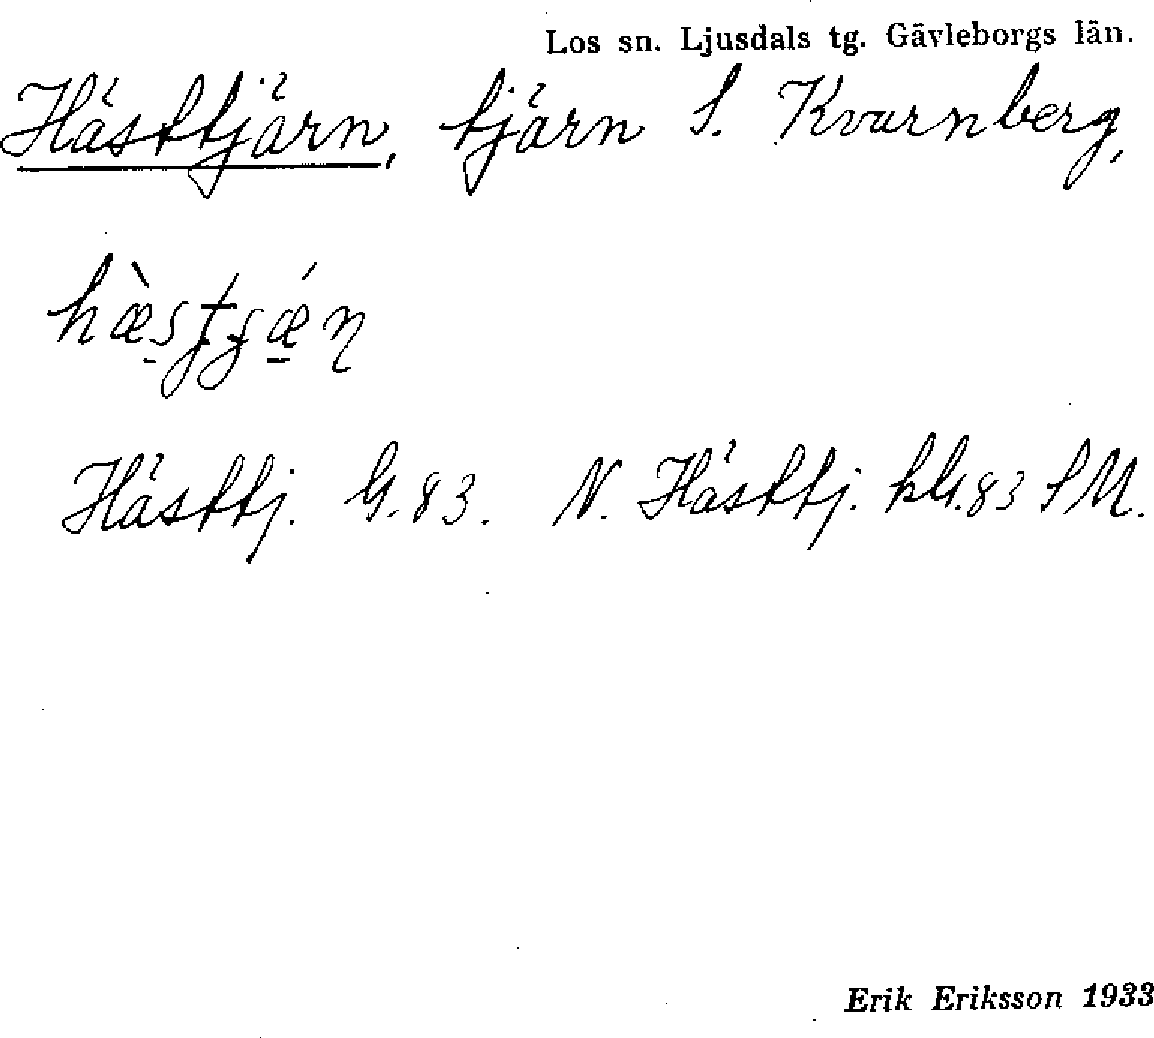 Los sn. Ljusdals tg. Gävleborgs län.
Hästtjärn, tjärn S. Kvarnberg,
Hästtj. G.83. N. Hästtj. kG.83 SM.
Erik Eriksson 1933